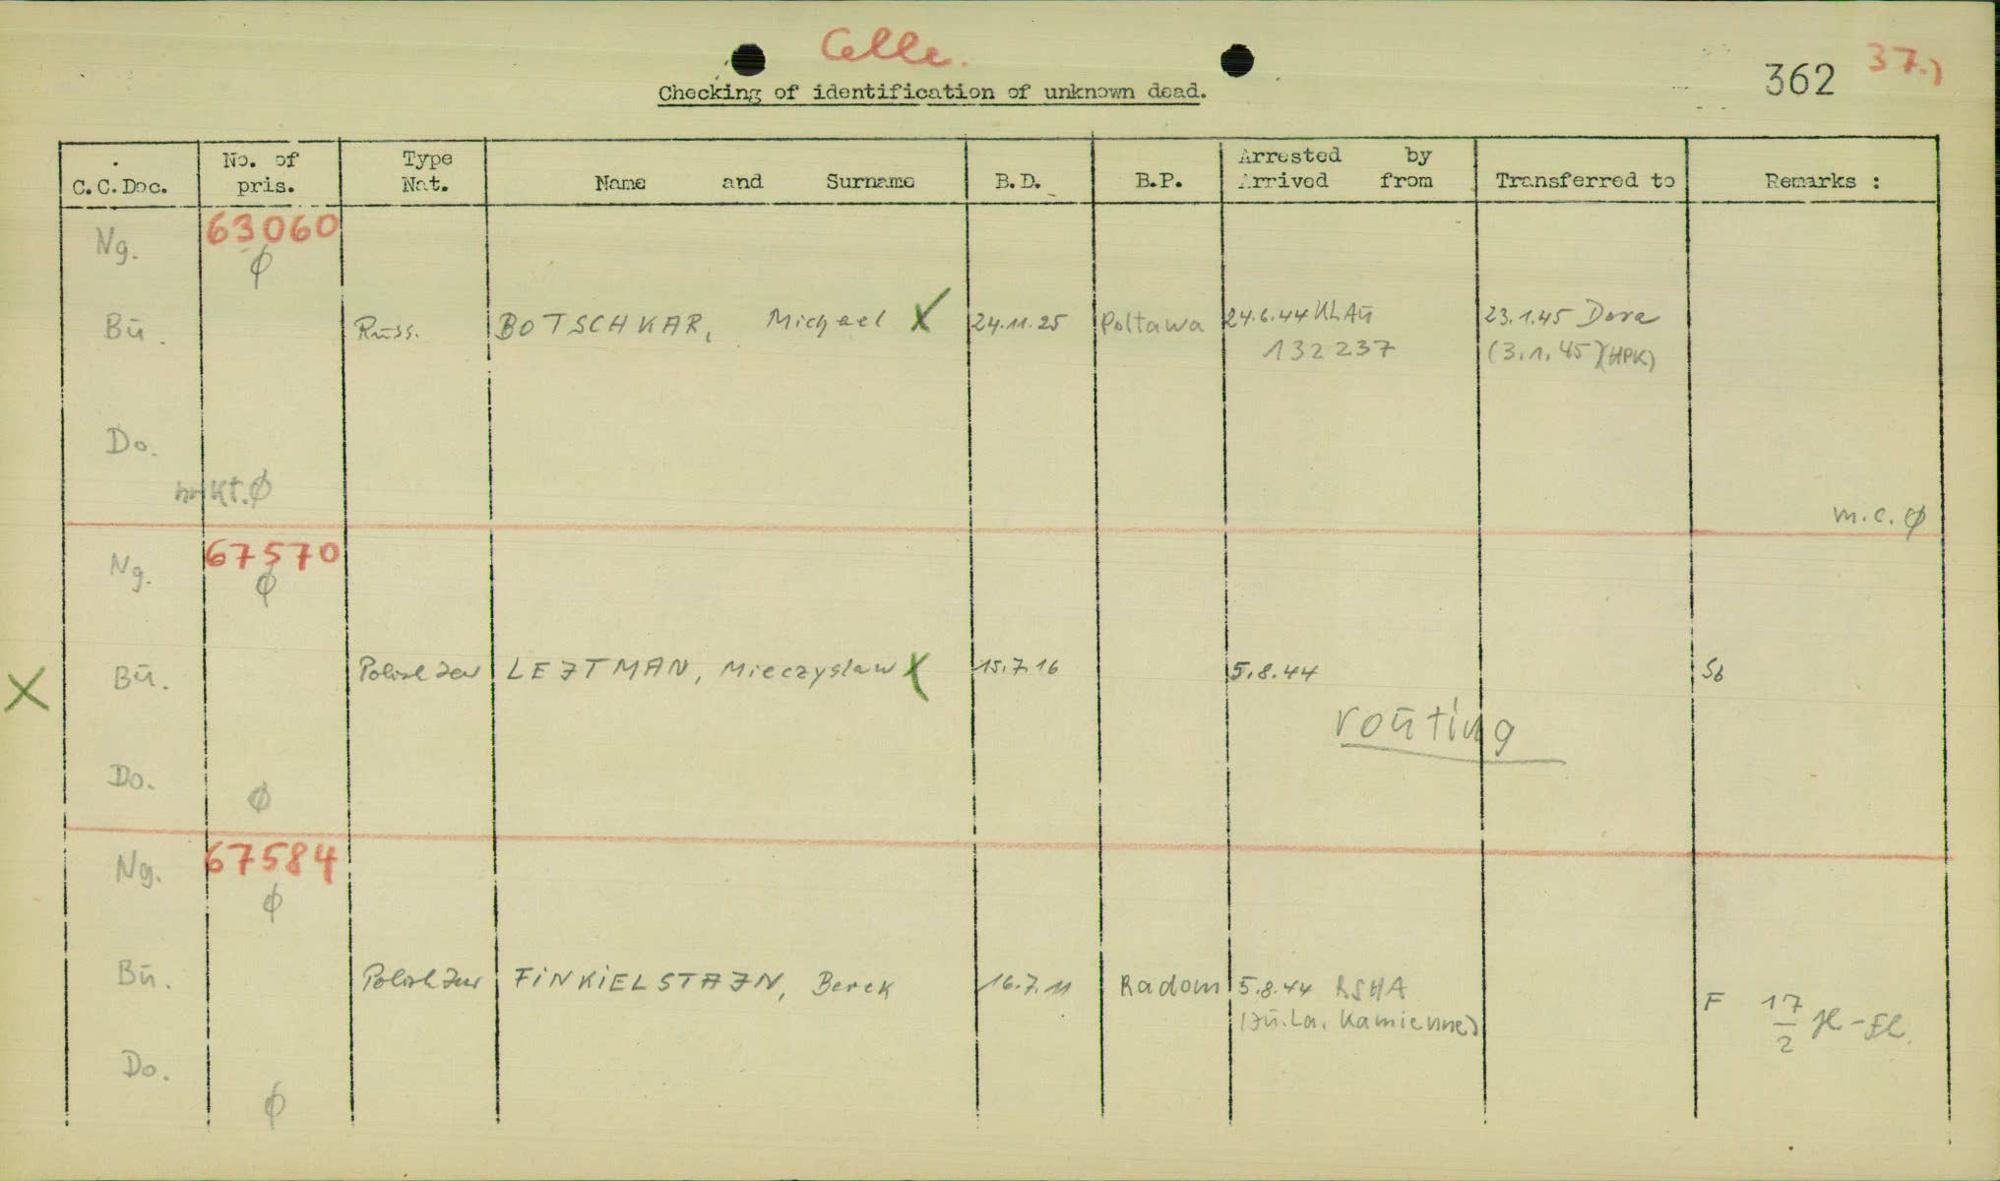 Celle.
362 37.)
Checking of identification of unknown dead.
C.C.Doc. No. of pris. Type Nat. Name and Surname B.D. B.P. Arrested by Arrived from Transferred to Remarks :
Ng. 63060
Ø
Bü. Russ. BOTSCHKAR, Michael X 24.11.25 Poltawa 24.6.44 KLAü 23.1.45 Dora
132237 (3.1.45)(HPK)
Do.
Kt. Ø
m.c. Ø
Ng. 67570
Ø
X Bü. Polish Jew LEJTMAN, Mieczyslaw X 15.7.16 5.8.44 Sb
routing
Do.
Ø
Ng. 67584
Ø
Bü. Polish Jew FiNKiELSTAJN, Berek 16.7.11 Radom 5.8.44 RSHA F 17/2
(Jü.La. Kamienne)
Do.
Ø